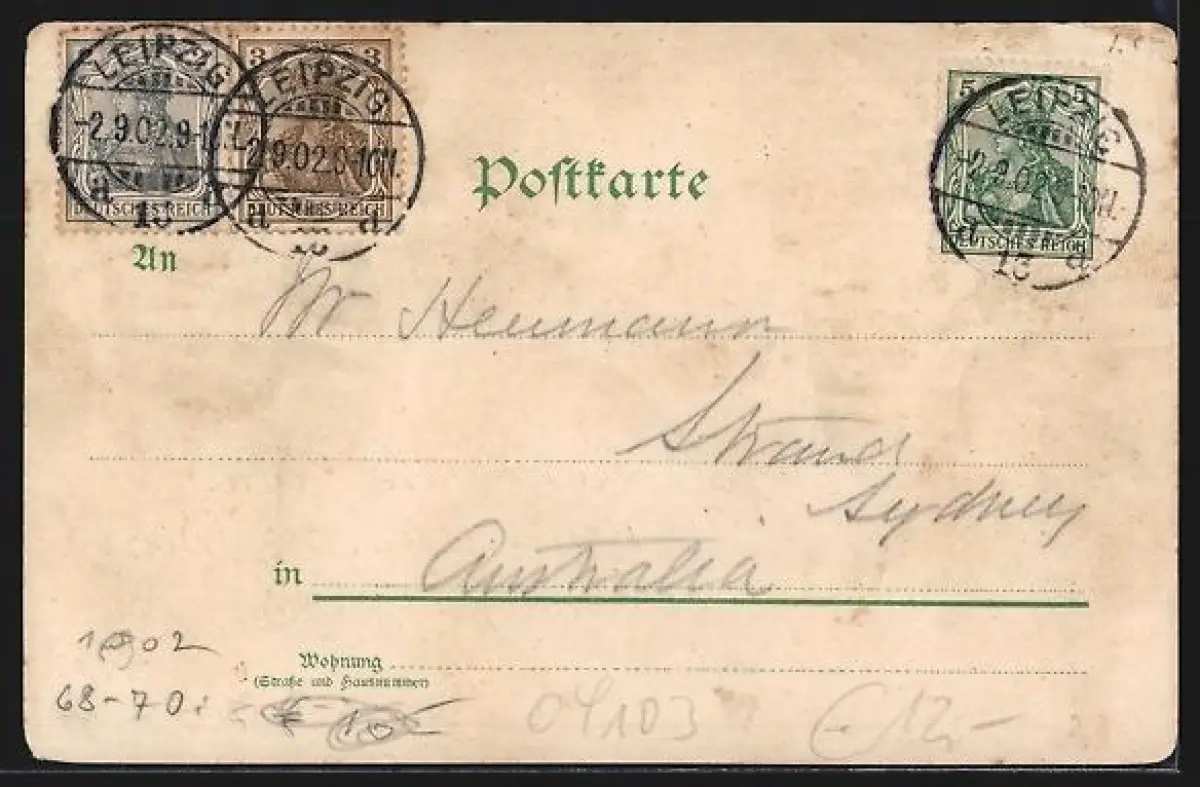 LEIPZIG
-2.9.02.9-10V.
a 13 a
DEUTSCHES REICH
3 3
LEIPZIG
2.9.02.9-10V.
a 13 a
DEUTSCHES REICH
5 5
LEIPZIG
-2.9.02
a 13 a
DEUTSCHES REICH
Postkarte
An
Mr Heumann
Strand
Sydney
in Australia
1902
Wohnung
(Straße und Hausnummer)
68-70.
04103
€ 12,-